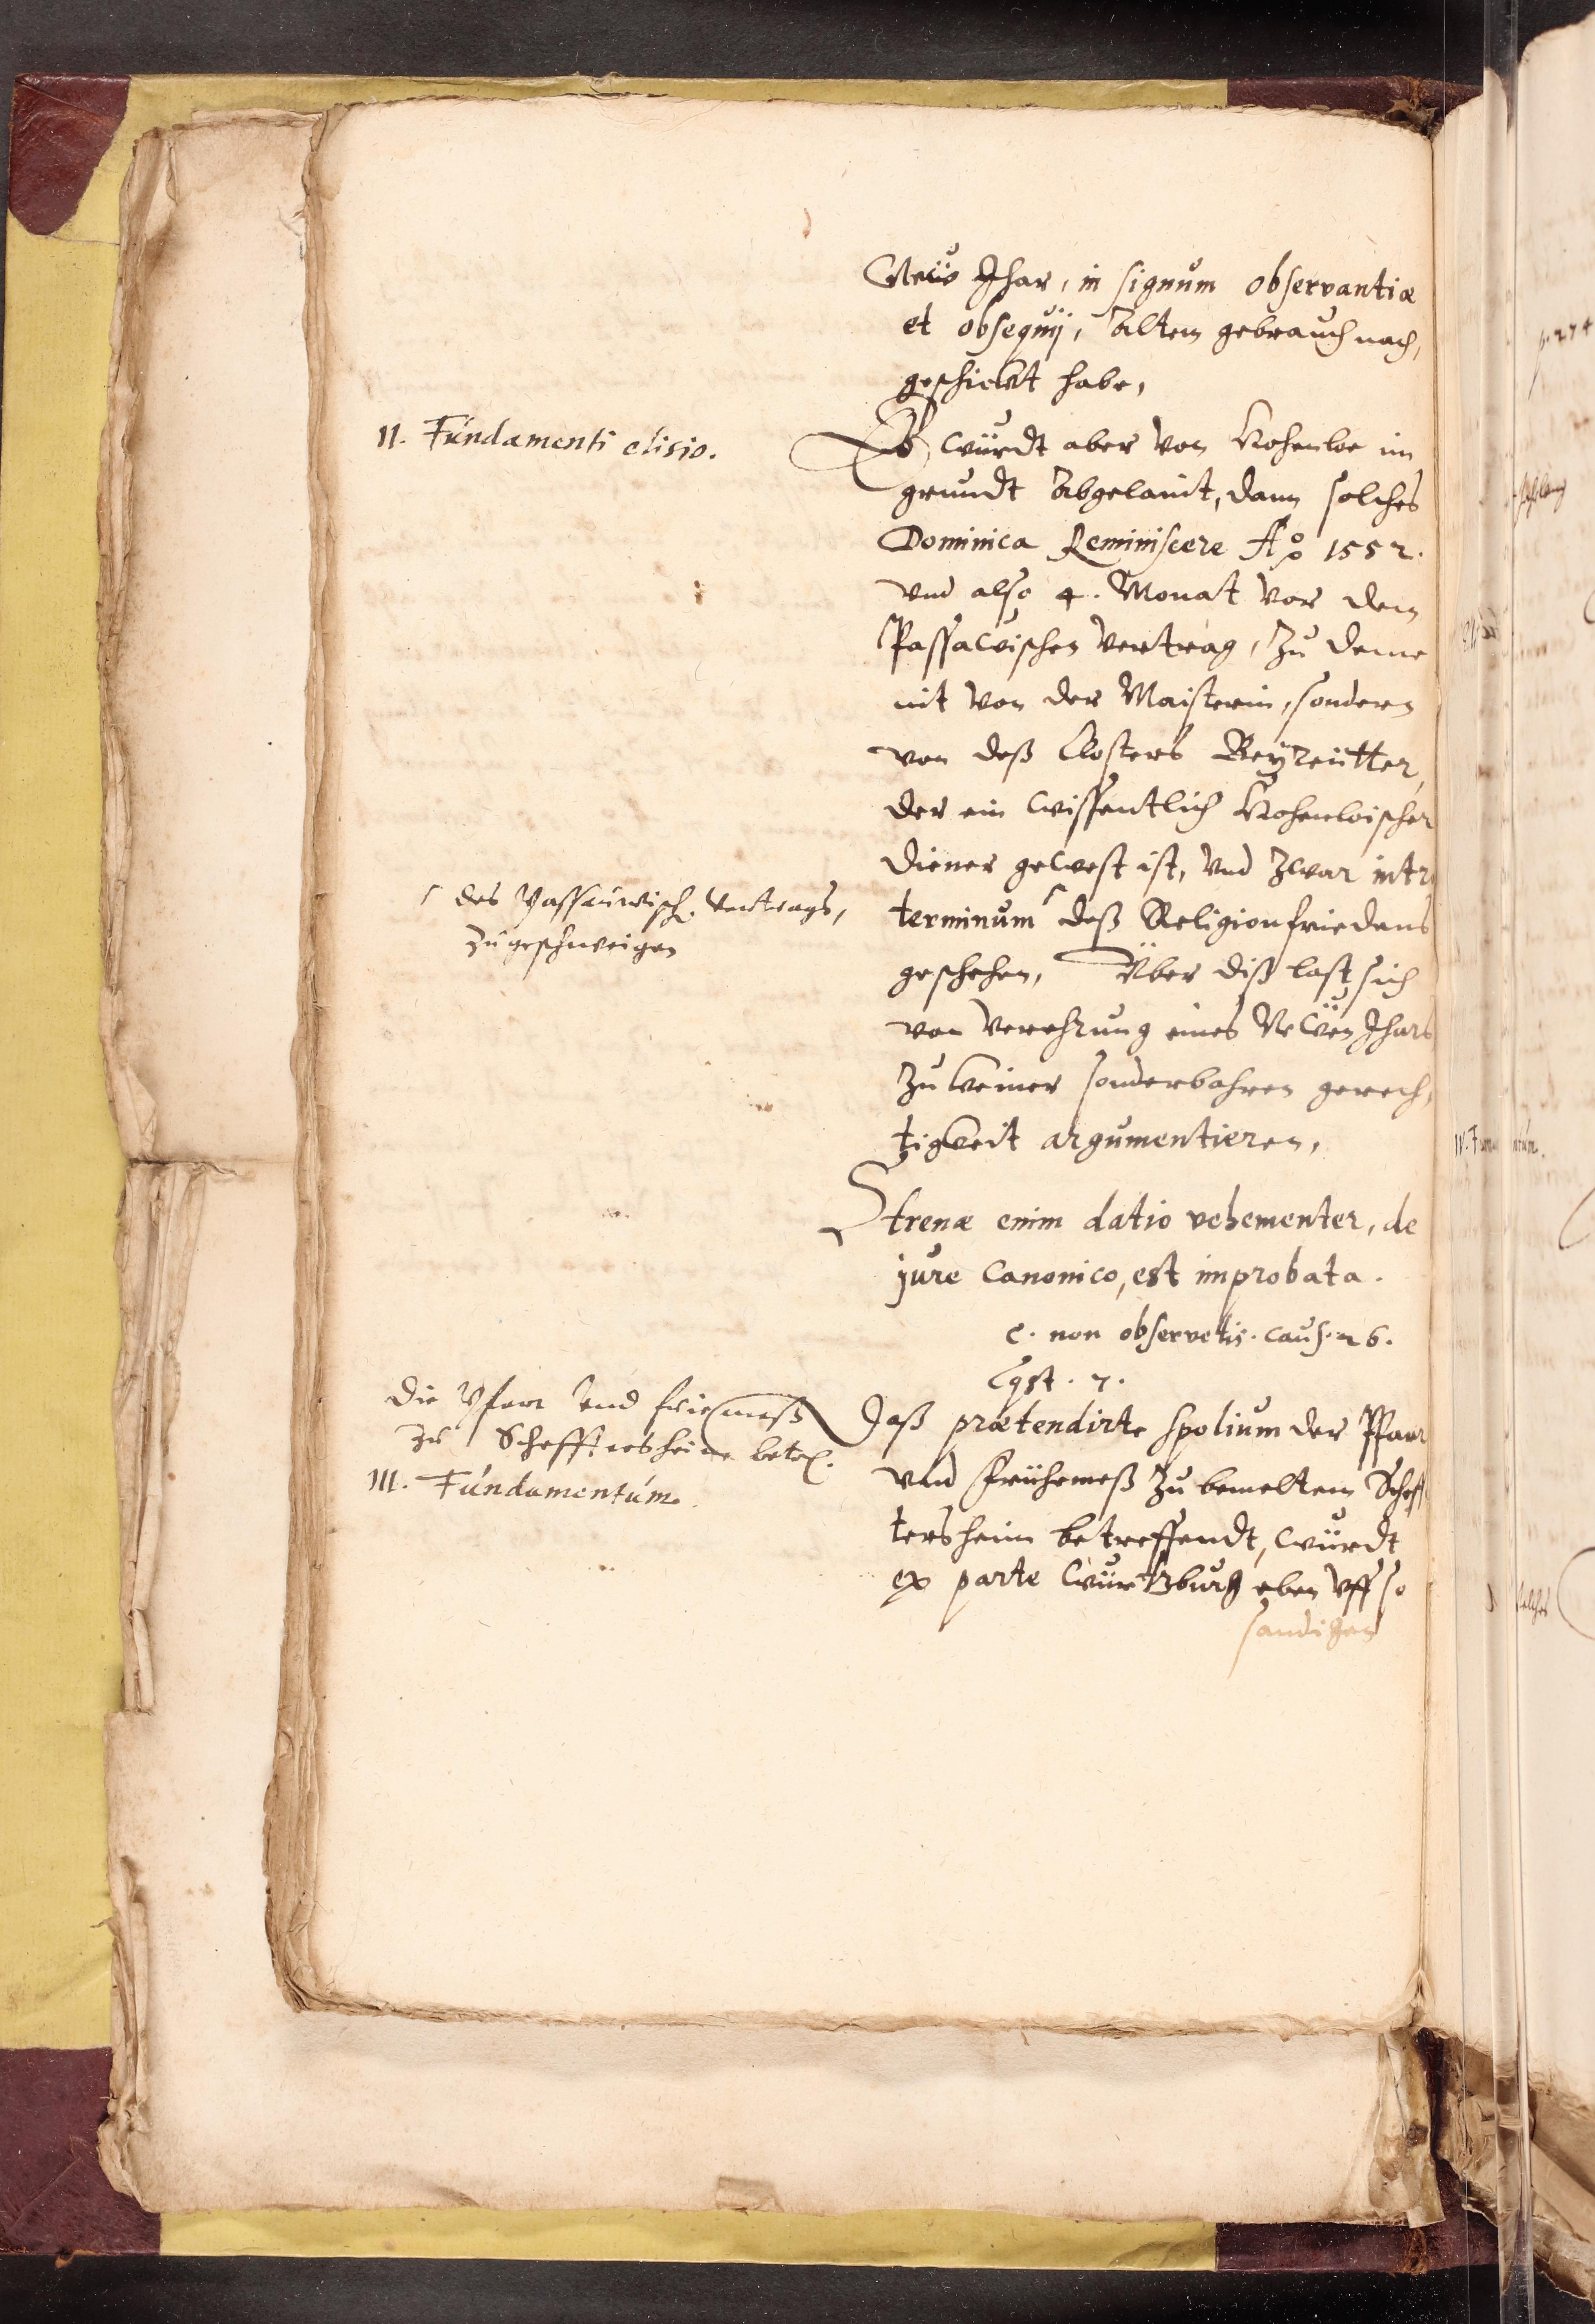 New Jhar, in signum observantiæ
et obsequij, altem gebrauch nach,
geschickt habe,
II. Fundamenti elisio.
Es würdt aber von Hohenloe im
grundt abgelaint, dann solches
Dominica Reminiscere Aº 1552.
vnd also 4. Monat vor dem
Passawischen vertrag, zu deme
nit von der Maisterin, sondern
von deß Closters Beyreütter,
der ein wissentlich Hohenloischer
diener gewest ist, vnd zwar intra
des Passauwisch. Vertrags,
zugeschweigen
terminum deß Religionfriedens
geschehen, Über diß last sich
von verehrung eines Newen Jhars
zu keiner sonderbahren gerech,
tigkeit argumentieren,
Strenæ enim datio vehementer, de
jure Canonico, est improbata.
c. non observetis. caus. 26.
qst. 7.
Die Pfarr vnd friemeß
zu Schefftersheim betr.
III. Fundamentum.
Daß prætendirte spolium der Pfarr
vnd frühemeß zu bemeltem Scheff
tersheim betreffendt, würdt
ex parte Würtzburg eben vff so
sandigen